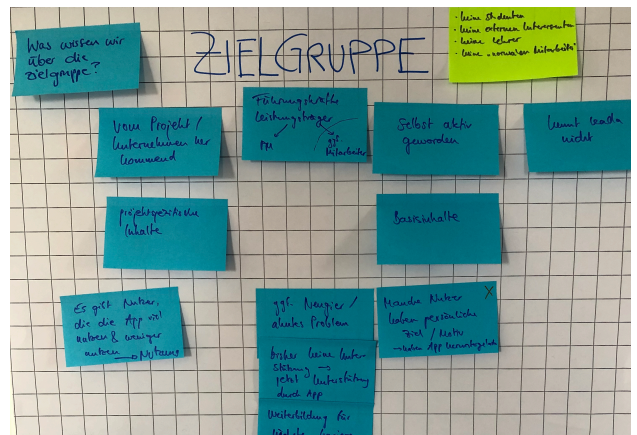 Was wissen wir
über die
Zielgruppe?
ZIELGRUPPE
· keine Studenten
· keine externen Interessenten
· keine Lehrer
· keine „normalen Mitarbeiter"
Vom Projekt /
Unternehmen her
kommend
Führungskräfte
Leistungsträger
PM
ggf.
Mitarbeiter
Selbst aktiv
geworden
kennt
nicht
projektspezifische
Inhalte
Basisinhalte
Es gibt Nutzer,
die die App viel
nutzen & weniger
nutzen → Nutzung
ggf. Neugier /
akutes Problem
Manche Nutzer
haben persönliche
Ziel / Motiv
→ App heruntergeladen
bisher keine Unter-
stützung →
jetzt Unterstützung
durch App
Weiterbildung für